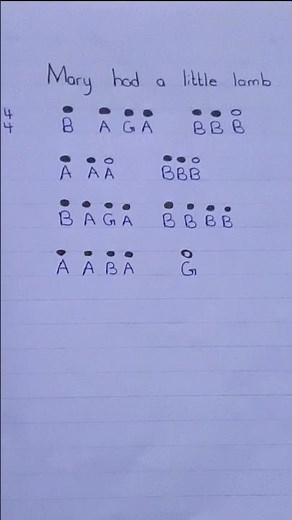 Mary had a little lamb
4
4 B A G A B B B
A A A B B B
B A G A B B B B
A A B A G